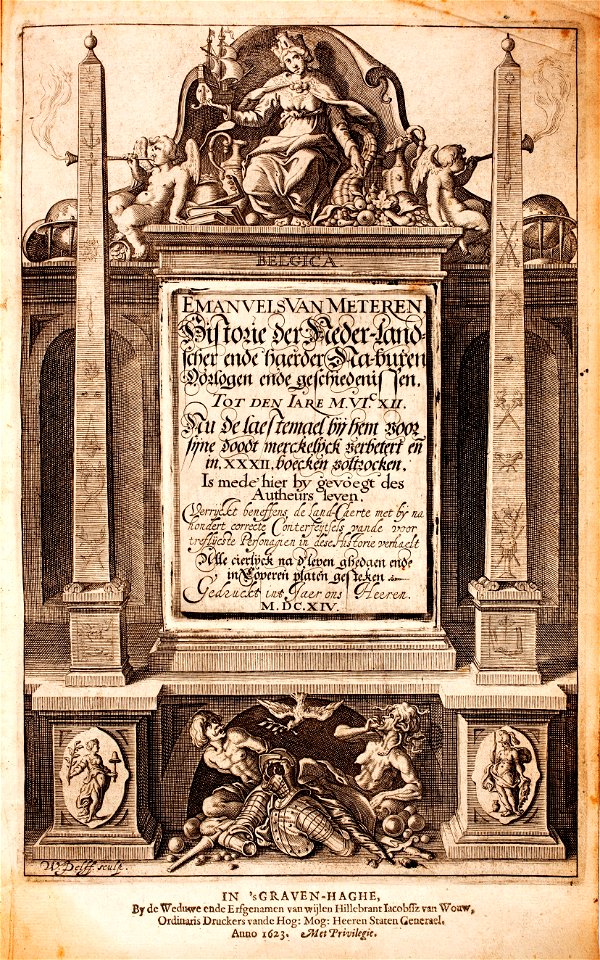 BELGICA
EMANVELS VAN METEREN
Historie der Neder-land-
scher ende haerder Na-buren
Oorlogen ende geschiedenissen.
TOT DEN IARE M.VI.C XII.
Nu de laestemael bij hem voor
sijne doodt merckelijck verbetert eñ
in. XXXII. boecken voltrocken.
Is mede hier by gevoegt des
Autheurs leven.
Verryckt beneffens de Land-Caerte met by na
hondert correcte Conterfeytsels vande voor
treflijcste Personagien in dese Historie verhaelt
Alle cierlyck na d'leven ghedaen ende
in Coperen platen gesteken
Gedruckt int Jaer ons Heeren.
M.DC.XIV.
W. Delff. sculp.
IN 'sGRAVEN-HAGHE,
By de Weduwe ende Erfgenamen van wijlen Hillebrant Iacobssz van Wouw,
Ordinaris Druckers vande Hog: Mog: Heeren Staten Generael.
Anno 1623. Met Privilegie.